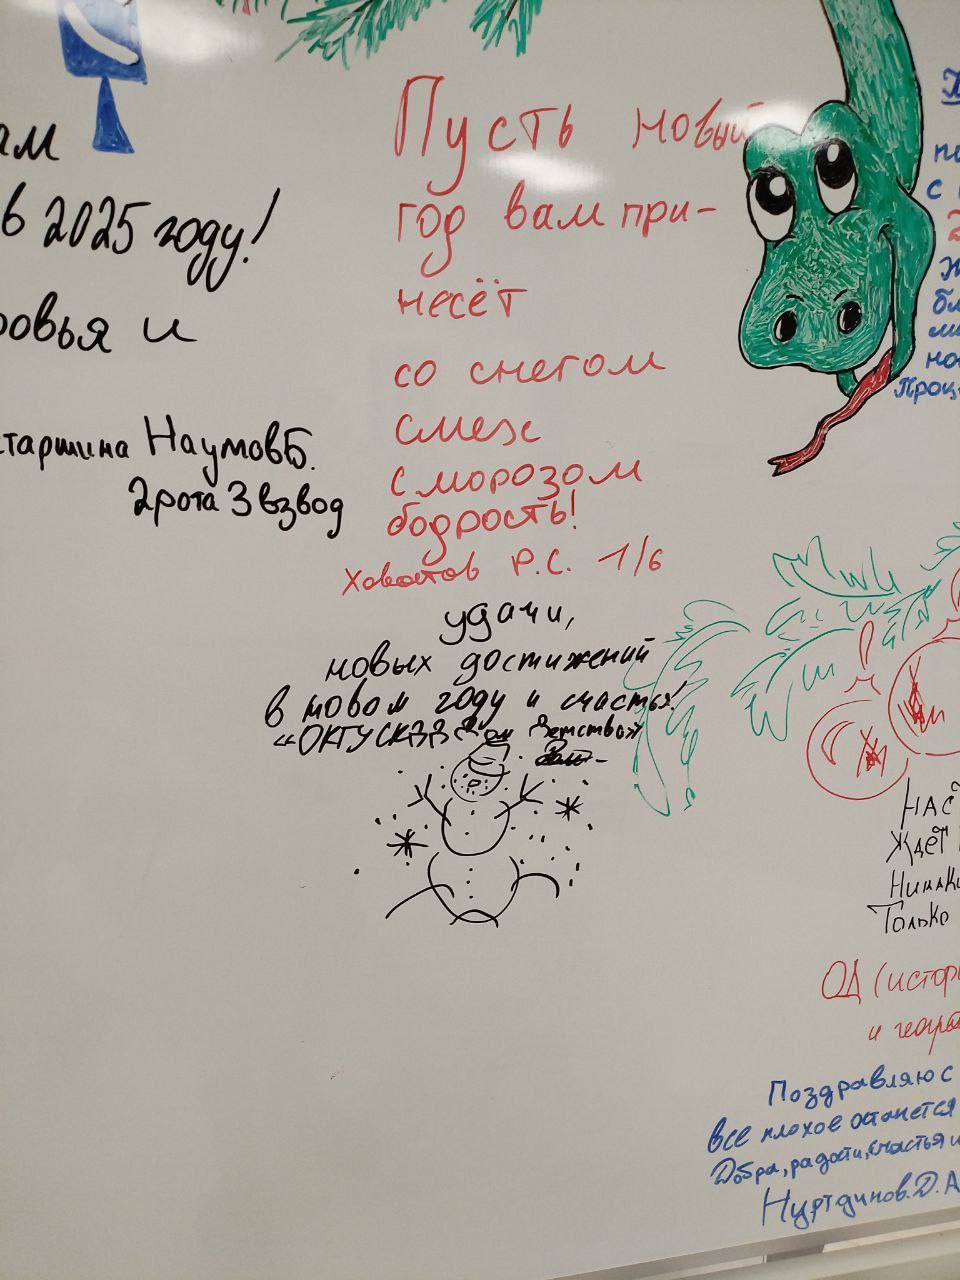 ам
в 2025 году!
ровья и
старшина Наумов Б.
2 рота 3 взвод
Пусть новый
год вам при-
несёт
со снегом
смех
с морозом
бодрость!
Р.С. 1/6
удачи,
новых достижений
в новом году и счастья!
Детства»
2
бл
нов
НАС
Ждёт
Только
ОД (истор
и геогр
Поздравляю с
все плохое останется
Добра, радости, счастья и
Нуртдинов. Д. А